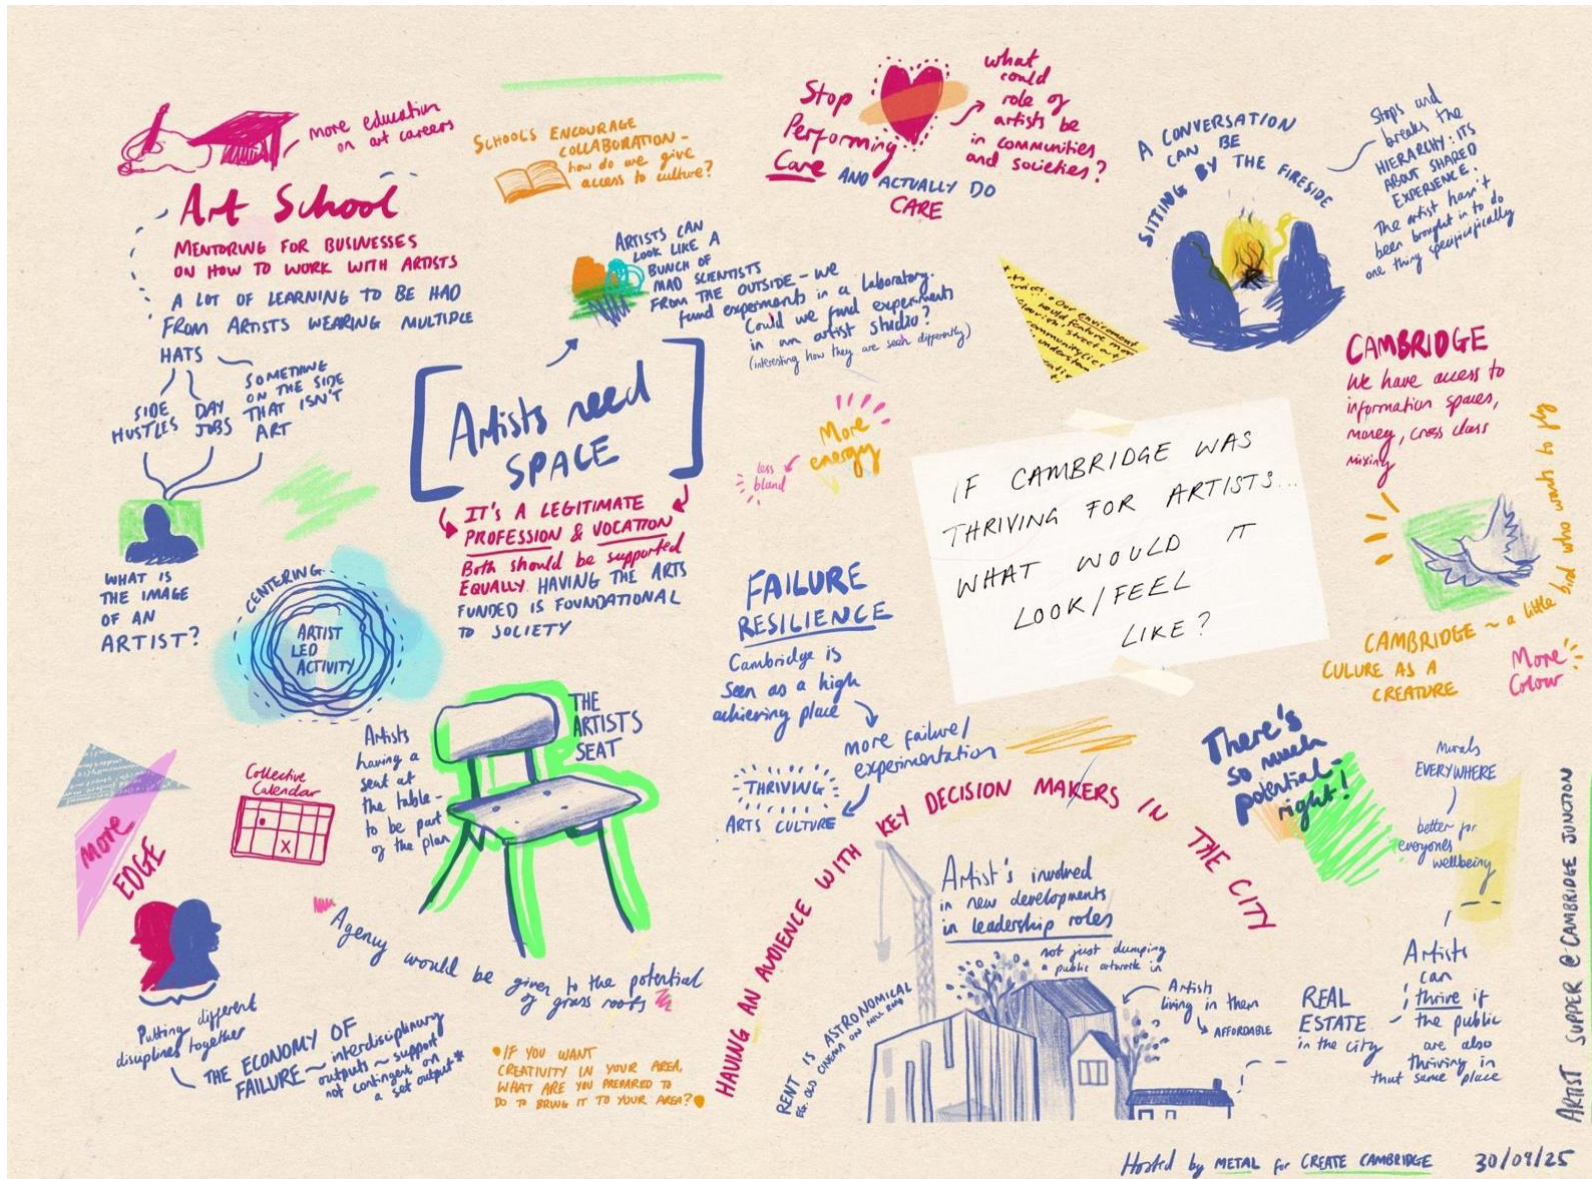 more education
on art careers
Art School
MENTORING FOR BUSINESSES
ON HOW TO WORK WITH ARTISTS
A LOT OF LEARNING TO BE HAD
FROM ARTISTS WEARING MULTIPLE
HATS
SIDE
HUSTLES
DAY
JOBS
SOMETHING
ON THE SIDE
THAT ISN'T
ART
WHAT IS
THE IMAGE
OF AN
ARTIST?
SCHOOL'S ENCOURAGE
COLLABORATION -
how do we give
access to culture?
ARTISTS CAN
LOOK LIKE A
BUNCH OF
MAD SCIENTISTS
FROM THE OUTSIDE - we
fund experiments in a laboratory.
Could we fund experiments
in an artist studio?
(interesting how they are seen differently)
[Artists need
SPACE]
IT'S A LEGITIMATE
PROFESSION & VOCATION
Both should be supported
EQUALLY. HAVING THE ARTS
FUNDED IS FOUNDATIONAL
TO SOCIETY
Stop
Performing
Care AND ACTUALLY DO
CARE
what
could
role of
artists be
in communities
and societies?
A CONVERSATION
CAN BE
SITTING BY THE FIRESIDE
Stops and
breaks the
HIERARCHY: ITS
ABOUT SHARED
EXPERIENCE.
The artist hasn't
been brought in to do
one thing specifically
Our enviroment
would feature mor
street art
CAMBRIDGE
We have access to
information spaces,
money, cross class
mixing
More
energy
less
bland
IF CAMBRIDGE WAS
THRIVING FOR ARTISTS...
WHAT WOULD IT
LOOK/FEEL
LIKE?
CAMBRIDGE ~ a little bird who wants to fly
CULURE AS A
CREATURE
More
Colour
CENTERING
ARTIST
LED
ACTIVITY
FAILURE
RESILIENCE
Cambridge is
seen as a high
achieving place
more failure/
experimentation
THRIVING
ARTS CULTURE
THE
ARTIST'S
SEAT
Artists
having a
seat at
the table -
to be part
of the plan
Collective
Calendar
X
MORE
EDGE
Putting different
disciplines together
THE ECONOMY OF
FAILURE ~ interdisciplinary
outputs ~ support
not contingent on
a set output*
Agency would be given to the potential
of grass roots
IF YOU WANT
CREATIVITY IN YOUR AREA,
WHAT ARE YOU PREPARED TO
DO TO BRING IT TO YOUR AREA?
HAVING AN AUDIENCE WITH KEY DECISION MAKERS IN THE CITY
RENT IS ASTRONOMICAL
EG. OLD CINEMA ON MILL ROAD
Artist's involved
in new developments
in leadership roles
not just dumping
a public artwork in
Artists
living in them
AFFORDABLE
There's
so much
potential -
right!
Murals
EVERYWHERE
better for
everyones
wellbeing
REAL
ESTATE
in the city
Artists
can
thrive if
the public
are also
thriving in
that same place
ARTIST SUPPER @ CAMBRIDGE JUNCTION
Hosted by METAL for CREATE CAMBRIDGE 30/09/25